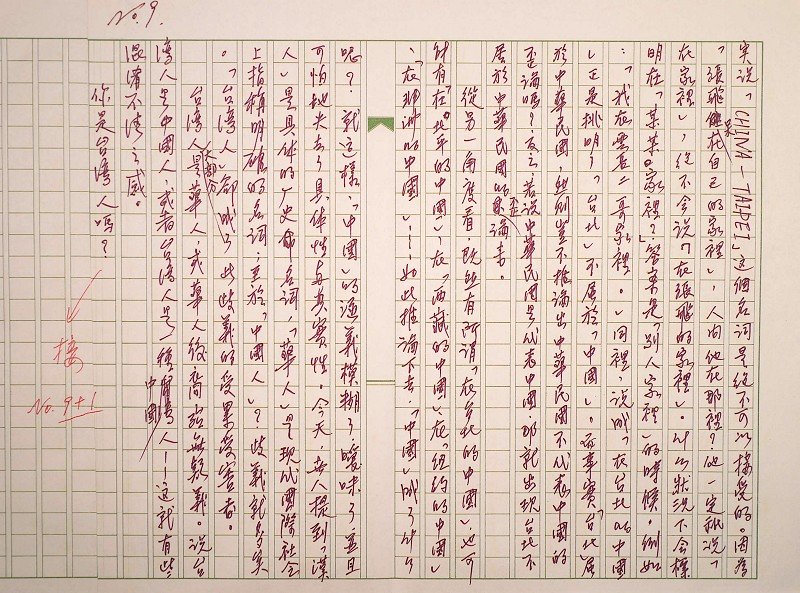 No. 9.
实说「CHINA－TAIPEI」这個名词是絕不可以接受的。因為
「張飛是在自己的家裡」，人问他在那裡？他一定就说「
在家裡」，絕不会说「在張飛的家裡」。什么狀況下会標
明在「某某家裡？」答案是「别人家裡」的時候。例如
：「我在雲長二哥家裡。」同裡，说成「在台北的中國
」正是挑明了「台北」不屬於「中國」。而事實「台北」屬
於中華民國，然則豈不推論出中華民國不代表中國的
歪論嗎？反之，若说中華民國是代表中國，那就出現台北不
屬於中華民國的歪論去。
從另一角度看，既然有所谓「在台北的中國」，也可
能有「在北平的中國」、在「西藏的中國」、在「纽约的中國」
、「在非洲的中國」……如此推論下去，「中國」成了什么
呢？就这樣，「中國」的涵義模糊了、曖昧了，並且
可怕地失去了具体性与真實性。今天，无人提到「漢
人」是具体的厂史命名词，「華人」是現代國際社会
上指稱明確的名词；至於「中國人」？歧義就多矣
。「台湾人」卻成了此歧義的受累受害者。
台湾人大部分是華人，或華人後裔殆無疑義。说台
湾人是中國人，或者台湾人是一種中國人——这就有些
混淆不清之感。
你是台湾人嗎？
接
No. 9+1